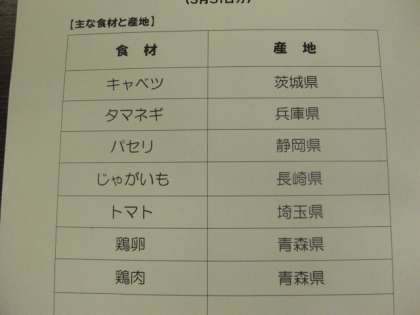 (5月31日分)
【主な食材と産地】
食 材 産 地
キャベツ 茨城県
タマネギ 兵庫県
パセリ 静岡県
じゃがいも 長崎県
トマト 埼玉県
鶏卵 青森県
鶏肉 青森県